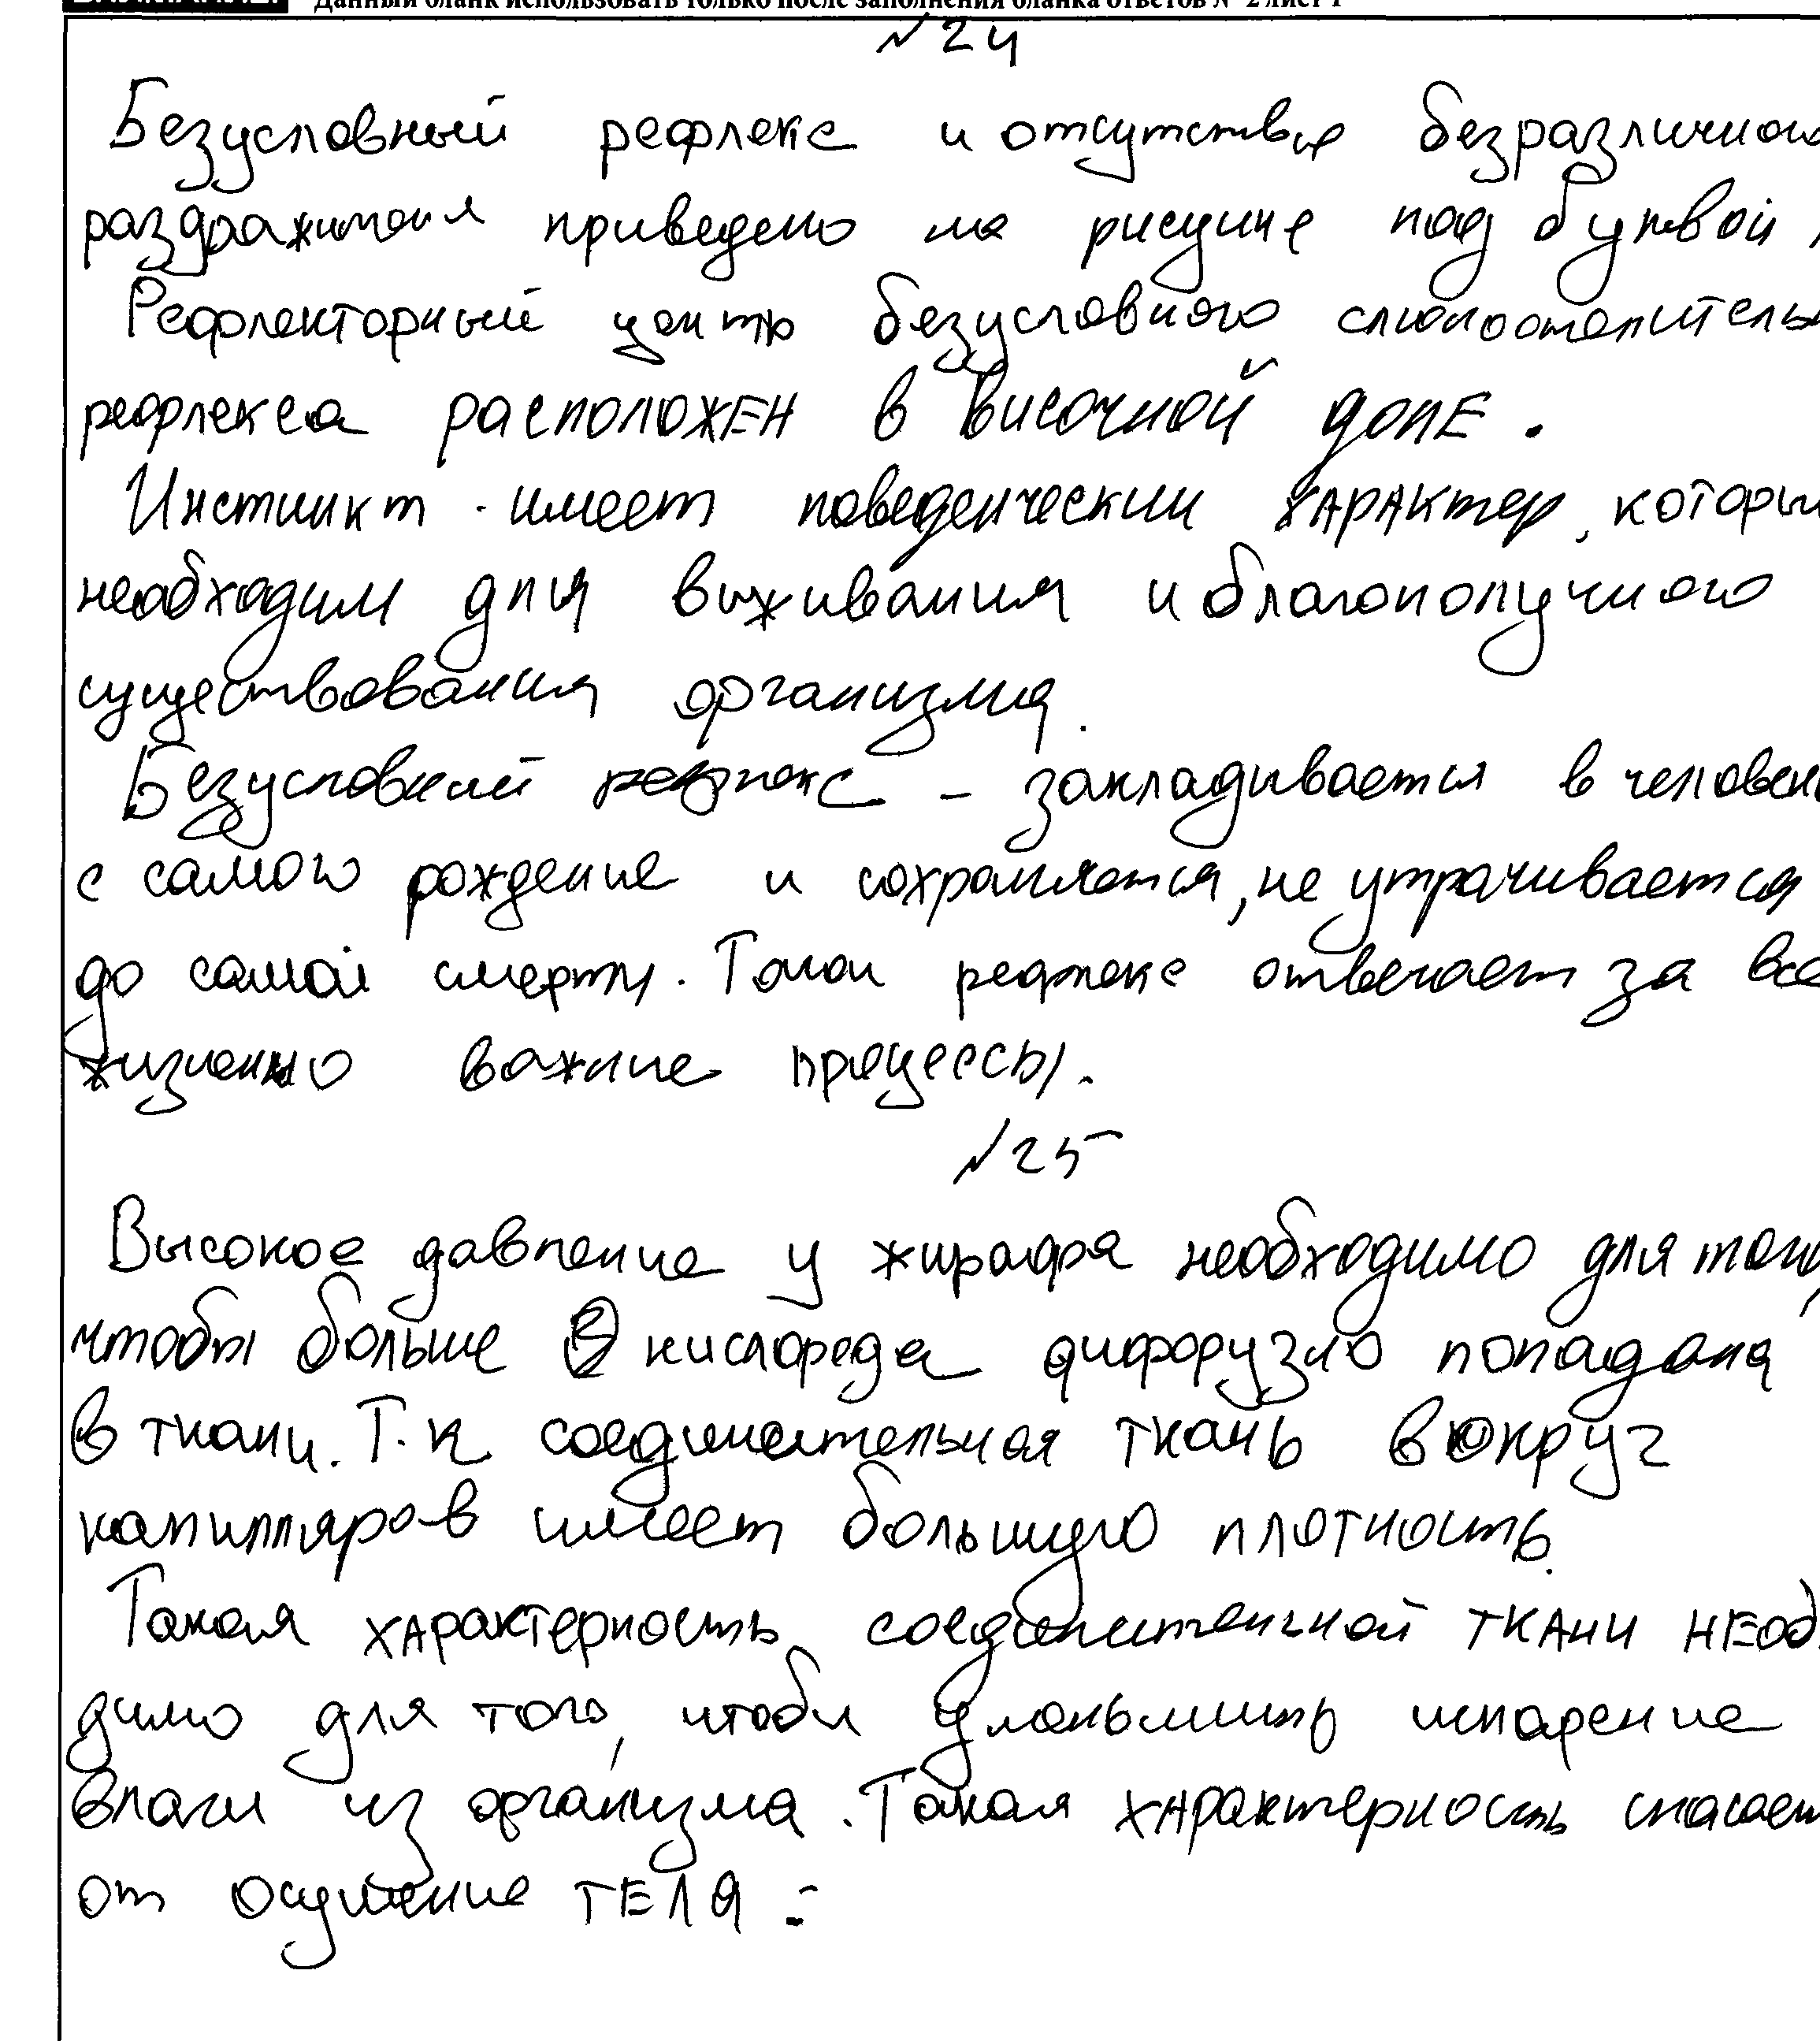 Данный бланк использовать только после заполнения бланка ответов № 2 лист 1
№24
Безусловный рефлекс и отсутствие безразличног
раздражителя приведено на рисунке под буквой
Рефлекторный центр безусловного слюноотделительн
рефлекса расположен в височной доле.
Инстинкт - имеет поведенческий характер, которы
необходим для выживания и благополучного
существования организма.
Безусловный рефлекс - закладывается в человеке
с самого рождение и сохраняется, не утрачивается
до самой смерти. Такой рефлекс отвечает за все
жизненно важные процессы.
№25
Высокое давление у жирафа необходимо для того,
чтобы больше кислорода диффузию попадала
в ткани. Т.к соединительная ткань вокруг
капилляров имеет большую плотность.
Такая характерность соединительной ткани необ
димо для того, чтобы уменьшить испарение
влаги из организма. Такая характерность спасает
от осушение тела.